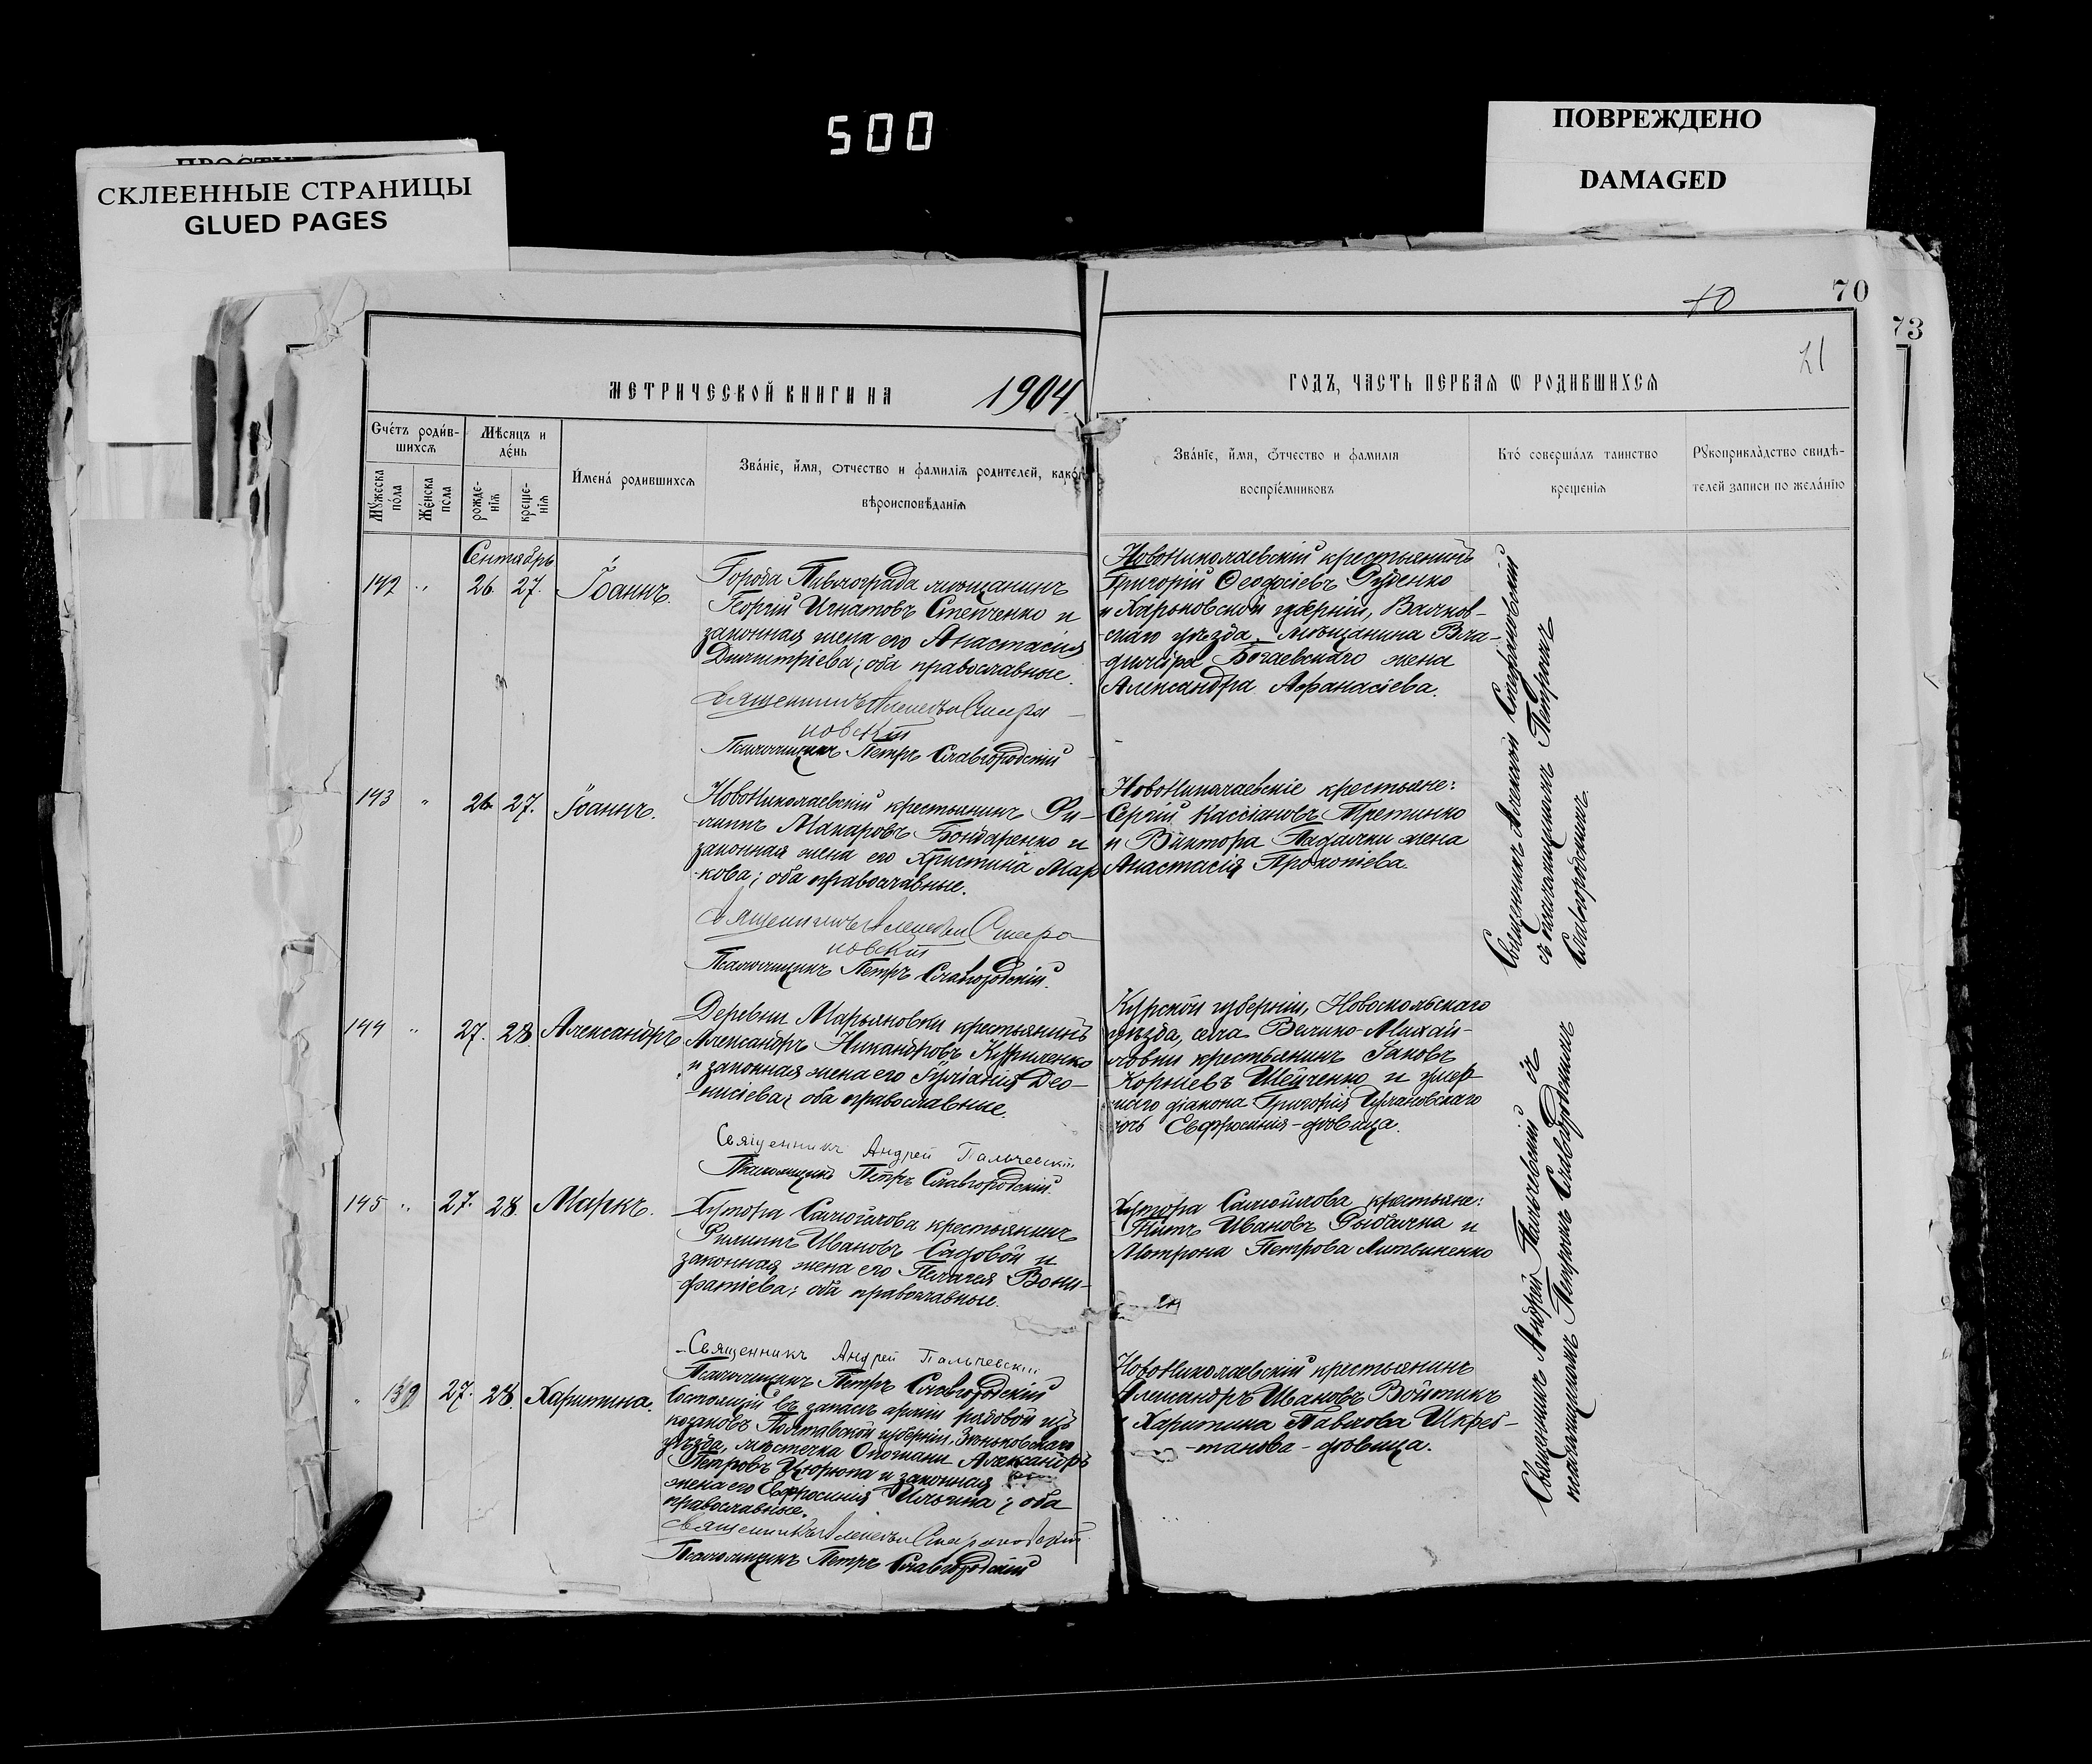 500
ПОВРЕЖДЕНО
DAMAGED
СКЛЕЕННЫЕ СТРАНИЦЫ
GLUED PAGES
70
70
73
21
МЕТРИЧЕСКОЙ КНИГИ НА 1904
ГОДЪ, ЧАСТЬ ПЕРВАЯ Ѡ РОДИВШИХСЯ
Счетъ родив-
шихся
Мѣсяцъ и
день
Мужеска
пола
Женска
пола
рожде-
нія
креще-
нія
Имена родившихся
Званіе, имя, отчество и фамилія родителей, какого
вѣроисповѣданія
Званіе, имя, отчество и фамилія
воспріемниковъ
Кто совершалъ таинство
крещенія
Рукоприкладство свидѣ-
телей записи по желанію
Сентябрь
142 " 26 27. Іоаннъ.
Города Павлограда мѣщанинъ
Георгій Игнатовъ Степченко и
законная жена его Анастасія
Димитріева; оба православные.
Священникъ Алексѣй Стефа-
новскій
Псаломщикъ Петръ Славгородскій
Новониколаевскій крестьянинъ
Григорій Ѳеодосіевъ Руденко
и Харьковской губерніи, Валков-
скаго уѣзда, мѣщанина Вла-
диміра Богаевскаго жена
Александра Афанасіева.
143 " 26 27. Іоаннъ.
Новониколаевскій крестьянинъ Фи-
липпъ Макаровъ Бондаренко и
законная жена его Христина Мар-
кова; оба православные.
Священникъ Алексѣй Стефа-
новскій
Псаломщикъ Петръ Славгородскій.
Новониколаевскіе крестьяне:
Сергій Кассіановъ Третинко
и Виктора Падалки жена
Анастасія Прокопіева.
Священникъ Алексѣй Стефановскій
съ псаломщикомъ Петромъ
Славгородскимъ.
144 " 27. 28. Александръ
Деревни Марьяновки крестьянинъ
Александръ Никандровъ Кириленко
и законная жена его Іуліанія Део-
нисіева; оба православные.
Священникъ Андрей Пальчевскій
Псаломщикъ Петръ Славгородскій.
Курской губерніи, Новооскольскаго
уѣзда, села Велико-Михай-
ловки крестьянинъ Іаковъ
Корніевъ Шейченко и умер-
шаго діакона Григорія
дочь Евфросинія-дѣвица.
145 " 27. 28. Маркъ.
Хутора Самойлова крестьянинъ
Филиппъ Ивановъ Садовой и
законная жена его Пелагея Вони-
фатіева; оба православные.
Священникъ Андрей Пальчевскій
Псаломщикъ Петръ Славгородскій
Хутора Самойлова крестьяне:
Титъ Ивановъ Рыбалка и
Матрона Петрова Литвиненко
" 139 27. 28. Харитина.
Состоящій въ запасѣ арміи рядовой изъ
козаковъ Полтавской губерніи, Зѣньковскаго
уѣзда, мѣстечка Опошни Александръ
Петровъ Цюрюпа и законная
жена его Евфросинія Ильина; оба
православные.
Священникъ Алексѣй Стефановскій
Псаломщикъ Петръ Славгородскій
Новониколаевскій крестьянинъ
Александръ Ивановъ Войтикъ
и Харитина Павлова
- дѣвица.
Священникъ Андрей Пальчевскій съ
псаломщикомъ Петромъ Славгородскимъ